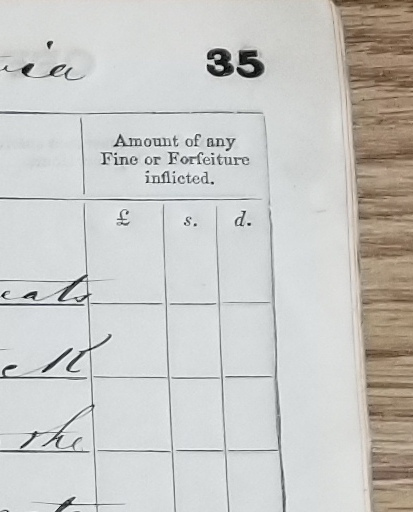 35
Amount of any
Fine or Forfeiture
inflicted.
£ s. d.
the